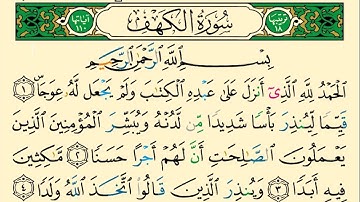 ترتيبها ١٨ سُورَةُ الْكَهْفِ آياتها ١١٠
بِسْمِ اللَّهِ الرَّحْمَٰنِ الرَّحِيمِ
الْحَمْدُ لِلَّهِ الَّذِي أَنزَلَ عَلَىٰ عَبْدِهِ الْكِتَابَ وَلَمْ يَجْعَل لَّهُ عِوَجًا ۜ ١
قَيِّمًا لِّيُنذِرَ بَأْسًا شَدِيدًا مِّن لَّدُنْهُ وَيُبَشِّرَ الْمُؤْمِنِينَ الَّذِينَ
يَعْمَلُونَ الصَّالِحَاتِ أَنَّ لَهُمْ أَجْرًا حَسَنًا ٢ مَّاكِثِينَ
فِيهِ أَبَدًا ٣ وَيُنذِرَ الَّذِينَ قَالُوا اتَّخَذَ اللَّهُ وَلَدًا ٤